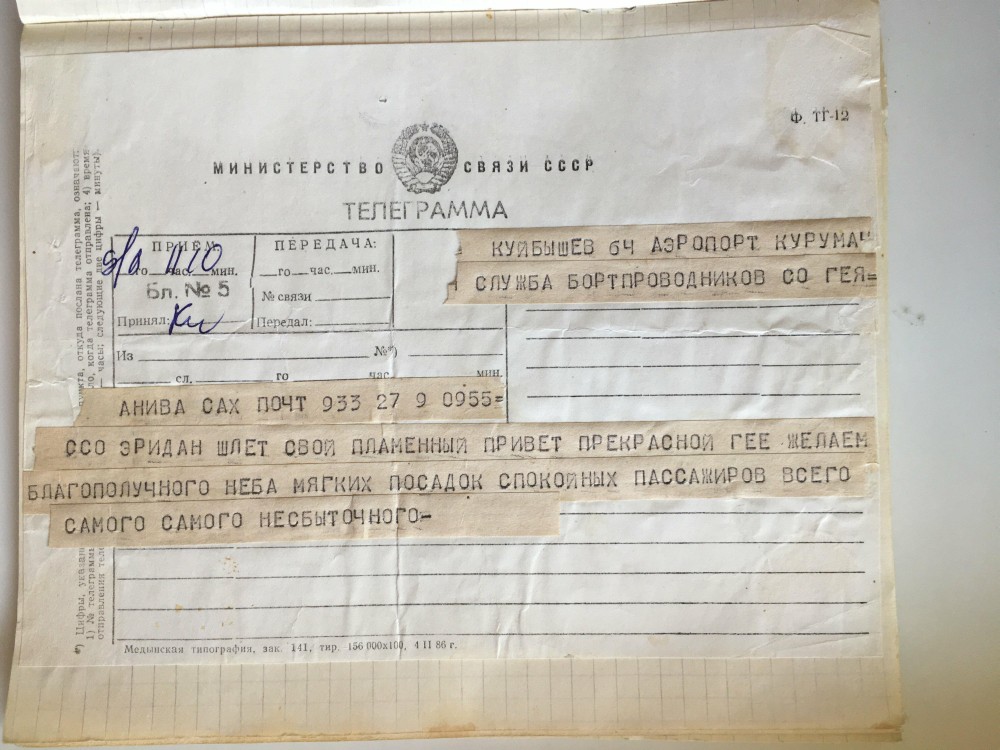 Ф. ТГ-12
МИНИСТЕРСТВО СВЯЗИ СССР
ТЕЛЕГРАММА
ПРИЕМ: ПЕРЕДАЧА:
го час. мин. го час. мин.
Бл. № 5
№ связи
Принял: Передал:
= КУЙБЫШЕВ 6Ч АЭРОПОРТ КУРУМАЧ
СЛУЖБА БОРТПРОВОДНИКОВ СО ГЕЯ=
Из №*)
сл. го час. мин.
АНИВА САХ ПОЧТ 933 27 9 0955=
ССО ЭРИДАН ШЛЕТ СВОЙ ПЛАМЕННЫЙ ПРИВЕТ ПРЕКРАСНОЙ ГЕЕ ЖЕЛАЕМ
БЛАГОПОЛУЧНОГО НЕБА МЯГКИХ ПОСАДОК СПОКОЙНЫХ ПАССАЖИРОВ ВСЕГО
САМОГО САМОГО НЕСБЫТОЧНОГО-
Медынская типография, зак. 141, тир. 156 000х100, 4 II 86 г.
*) Цифры, указан
1) № телеграммы
отправления теле
пункта, откуда послана телеграмма, означают:
ло, когда телеграмма отправлена; 4) время
часы; следующие две цифры — минуты).